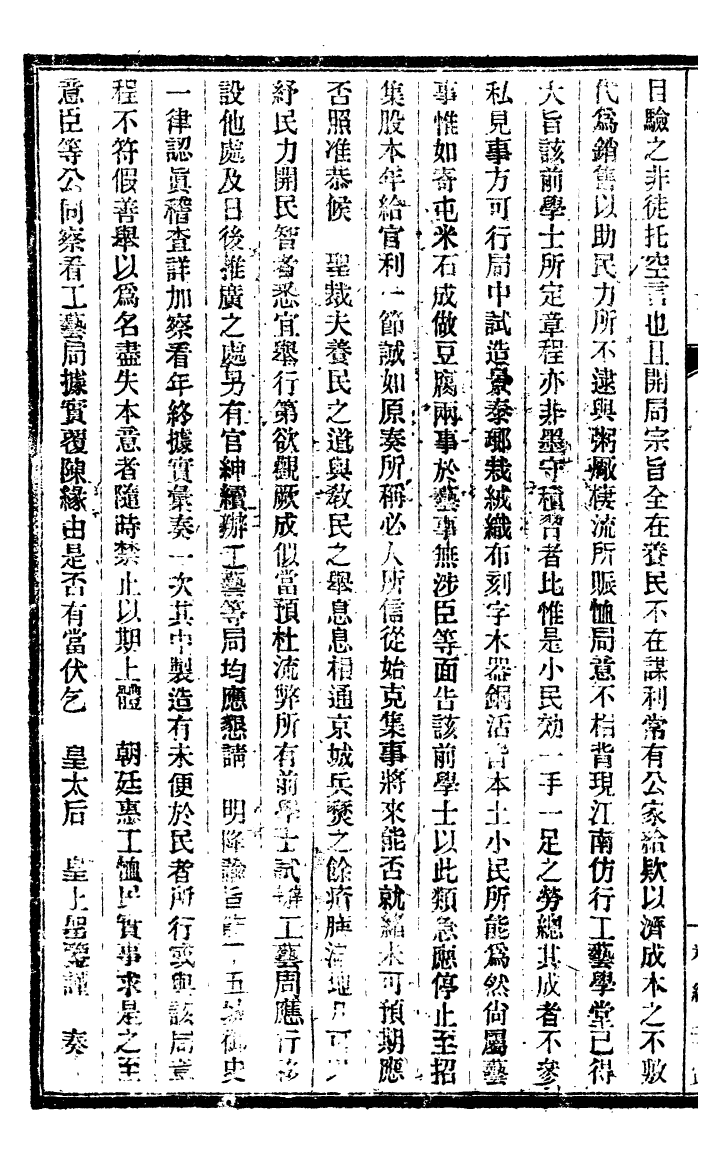 目驗之非徒托空言也且開局宗旨全在養民不在謀利常有公家給欵以濟成本之不敷
代爲銷售以助民力所不逮與粥廠棲流所賑恤局意不相背現江南仿行工藝學堂已得
大旨該前學士所定章程亦非墨守積習者比惟是小民効一手一足之勞總其成者不參
私見事方可行局中試造景泰瑯栽絨織布刻字木器銅活皆本土小民所能爲然尙屬藝
事惟如寄屯米石成做豆腐兩事於藝事無涉臣等面告該前學士以此類急應停止至招
集股本年給官利一節誠如原奏所稱必人所信從始克集事將來能否就緒未可預期應
否照准恭候　聖裁夫養民之道與敎民之舉息息相通京城兵燹之餘瘡肺滿地凡可以
紓民力開民智者悉宜舉行第欲觀厥成似當預杜流弊所有前學士試辦工藝局應行移
設他處及日後推廣之處另有官紳續辦工藝等局均應懇請　明降諭旨　五城御史
一律認眞稽查詳加察看年終據實彙奏一次其中製造有未便於民者所行或與該局章
程不符假善舉以爲名盡失本意者隨時禁止以期上體　朝廷惠工恤民實事求是之至
意臣等公同察看工藝局據實覆陳緣由是否有當伏乞　皇太后　皇上聖鑒謹　奏